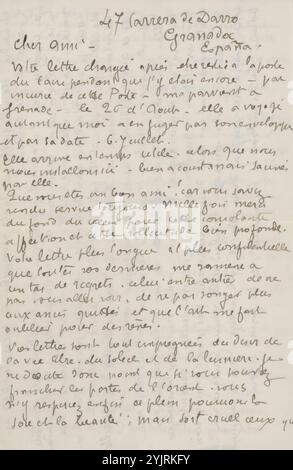 47 Carrera de Darro
Granada
España
Cher ami -
Votre lettre chargée après être restée à la poste
du Caire pendant que j'y étais encore - par
incurie de cette Poste - me parvient à
Grenade - le 26 d'Août. elle a voyagé
autant que moi à en juger par son enveloppe
et par sa date - 6 Juillet.
Elle arrive en temps utile, alors que nous
nous installons ici - bien à court mais sauvés
par elle.
Que vous êtes un bon ami! car vous savez
rendre service Mille fois merci
du fond du cœur pour cette consolante
affection et cette bien profonde.
Votre lettre plus longue et plus confidentielle
que toutes vos dernières me ramène à
un tas de regrets, celui entre autres de ne
pas vous aller voir, de ne pas songer plus
aux amis quittés et que l'art me fait
oublier pour des rêves.
Vos lettres sont tout imprégnées du désir de
la vie libre, du soleil et de la lumière. je
ne doute donc point que si vous pouviez
franchir les portes de l'orient, vous
n'y respiriez enfin à plein poumons la
joie et la beauté; mais sort cruel ceux qui
alamy
Image ID: 2YJRKFY
www.alamy.com